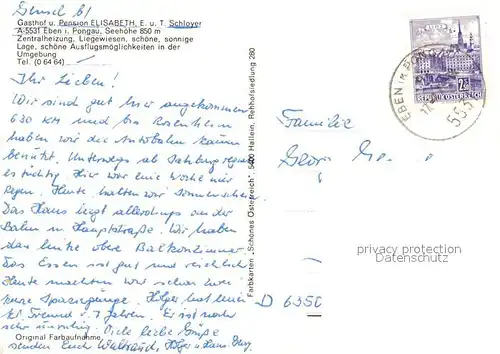 Gasthof u. Pension ELISABETH, E. u. T. Schloyer
A-5531 Eben i. Pongau, Seehöhe 850 m
Zentralheizung, Liegewiesen, schöne, sonnige
Lage, schöne Ausflugsmöglichkeiten in der
Umgebung
Tel. (0 64 64)
Ihr Lieben!
Wir sind gut hier angekommen
630 km und bis Rosenheim
haben wir die Autobahn kaum
benützt. Unterwegs ab Salzburg regnete
es richtig. Hier war eine Woche nur
Regen. Heute hatten wir Sonnenschein.
Das Haus liegt allerdings an der
Bahn u. Hauptstraße. Wir haben
das linke obere Balkonzimmer.
Das Essen ist gut und reichlich
Heute machten wir schon zwei
kurze Spaziergänge. Holger hat einen
kl. Freund v. 7 Jahren. Er ist noch
sehr unruhig. Viele liebe Grüße
senden Euch Waltraud, Holger u. Hans
Original Farbaufnahme
Farbkarten „Schönes Österreich“, 5400 Hallein, Rehhofsiedlung 280
REPUBLIK ÖSTERREICH
EBEN IM PONGAU
Familie
Georg
D 6350
privacy protection
Datenschutz